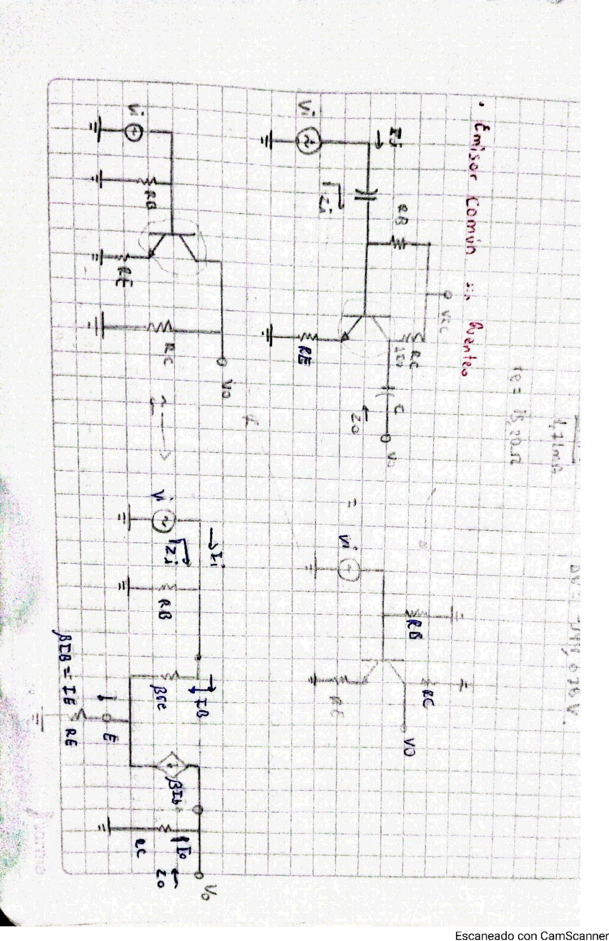 1,71mA
re = 15,20Ω
• Emisor Común
Vcc
RB
RC
Io
C
Vo
Zo
Ii
Zi
Vi
RE
=
Vi
RB
RC
RE
Vo
Vi
RB
RE
RC
Vo
Vi
Ii
Zi
RB
IB
βre
βIb
E
βIB = IE
RE
RC
Io
Zo
Vo
Escaneado con CamScanner